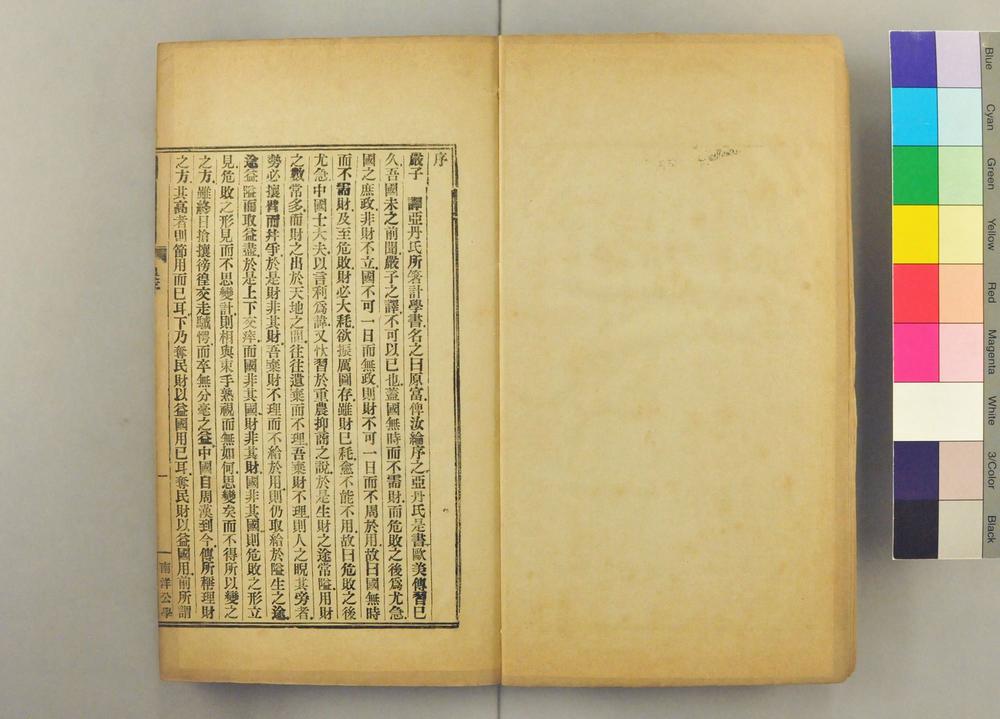 序
嚴子 譯亞丹氏所箸計學書名之曰原富俾汝綸序之亞丹氏是書歐美傳習已
久吾國未之前聞嚴子之譯不可以已也蓋國無時而不需財而危敗之後爲尤急
國之庶政非財不立國不可一日而無政則財不可一日而不周於用故曰國無時
而不需財及至危敗財必大耗欲振厲圖存雖財已耗愈不能不用故曰危敗之後
尤急中國士大夫以言利爲諱又忕習於重農抑商之說於是生財之途常隘用財
之數常多而財之出於天地之間往往遺棄而不理吾棄財不理則人之睨其旁者
勢必攘臂而幷爭於是財非其財吾棄財不理而不給於用則仍取給於隘生之途
途益隘而取益盡於是上下交瘁而國非其國財非其財國非其國則危敗之形立
見危敗之形見而不思變計則相與束手熟視而無如何思變矣而不得所以變之
之方雖終日搶攘徬徨交走駴愕而卒無分毫之益中國自周漢到今傳所稱理財
之方其高者則節用而已耳下乃奪民財以益國用已耳奪民財以益國用前所謂
南洋公學
Blue
Cyan
Green
Yellow
Red
Magenta
White
3/Color
Black